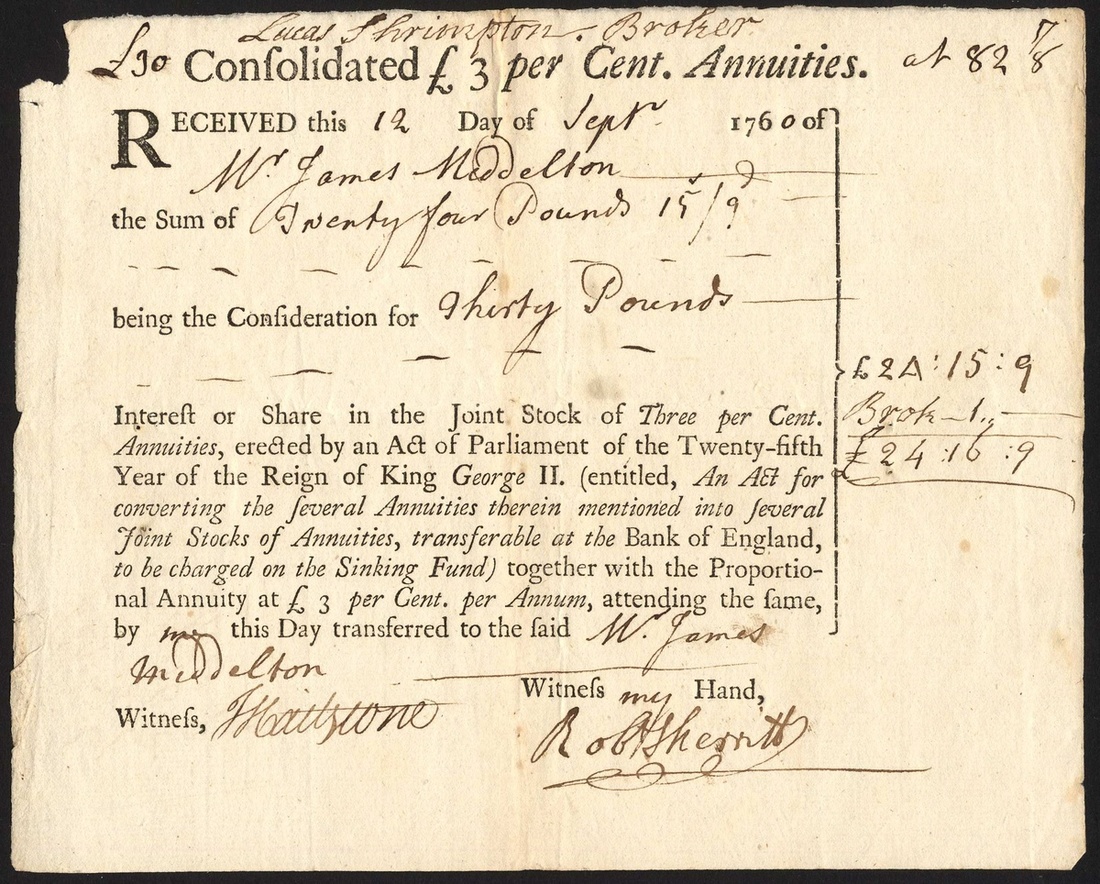 Lucas Shrimpton. Broker
£30 Conſolidated £ 3 per Cent. Annuities. at 82 7/8
RECEIVED this 12 Day of Septr 1760 of
Mr James Meddelton
the Sum of Twenty four Pounds 15s/9d
being the Conſideration for Thirty Pounds
£24:15:9
Brok—1,,—
£24:16:9
Intereſt or Share in the Joint Stock of Three per Cent.
Annuities, erected by an Act of Parliament of the Twenty-fifth
Year of the Reign of King George II. (entitled, An Act for
converting the ſeveral Annuities therein mentioned into ſeveral
Joint Stocks of Annuities, transferable at the Bank of England,
to be charged on the Sinking Fund) together with the Proportio-
nal Annuity at £ 3 per Cent. per Annum, attending the ſame,
by me this Day transferred to the said Mr James
Meddelton
Witneſs my Hand,
Witneſs,
Robt Sherritt